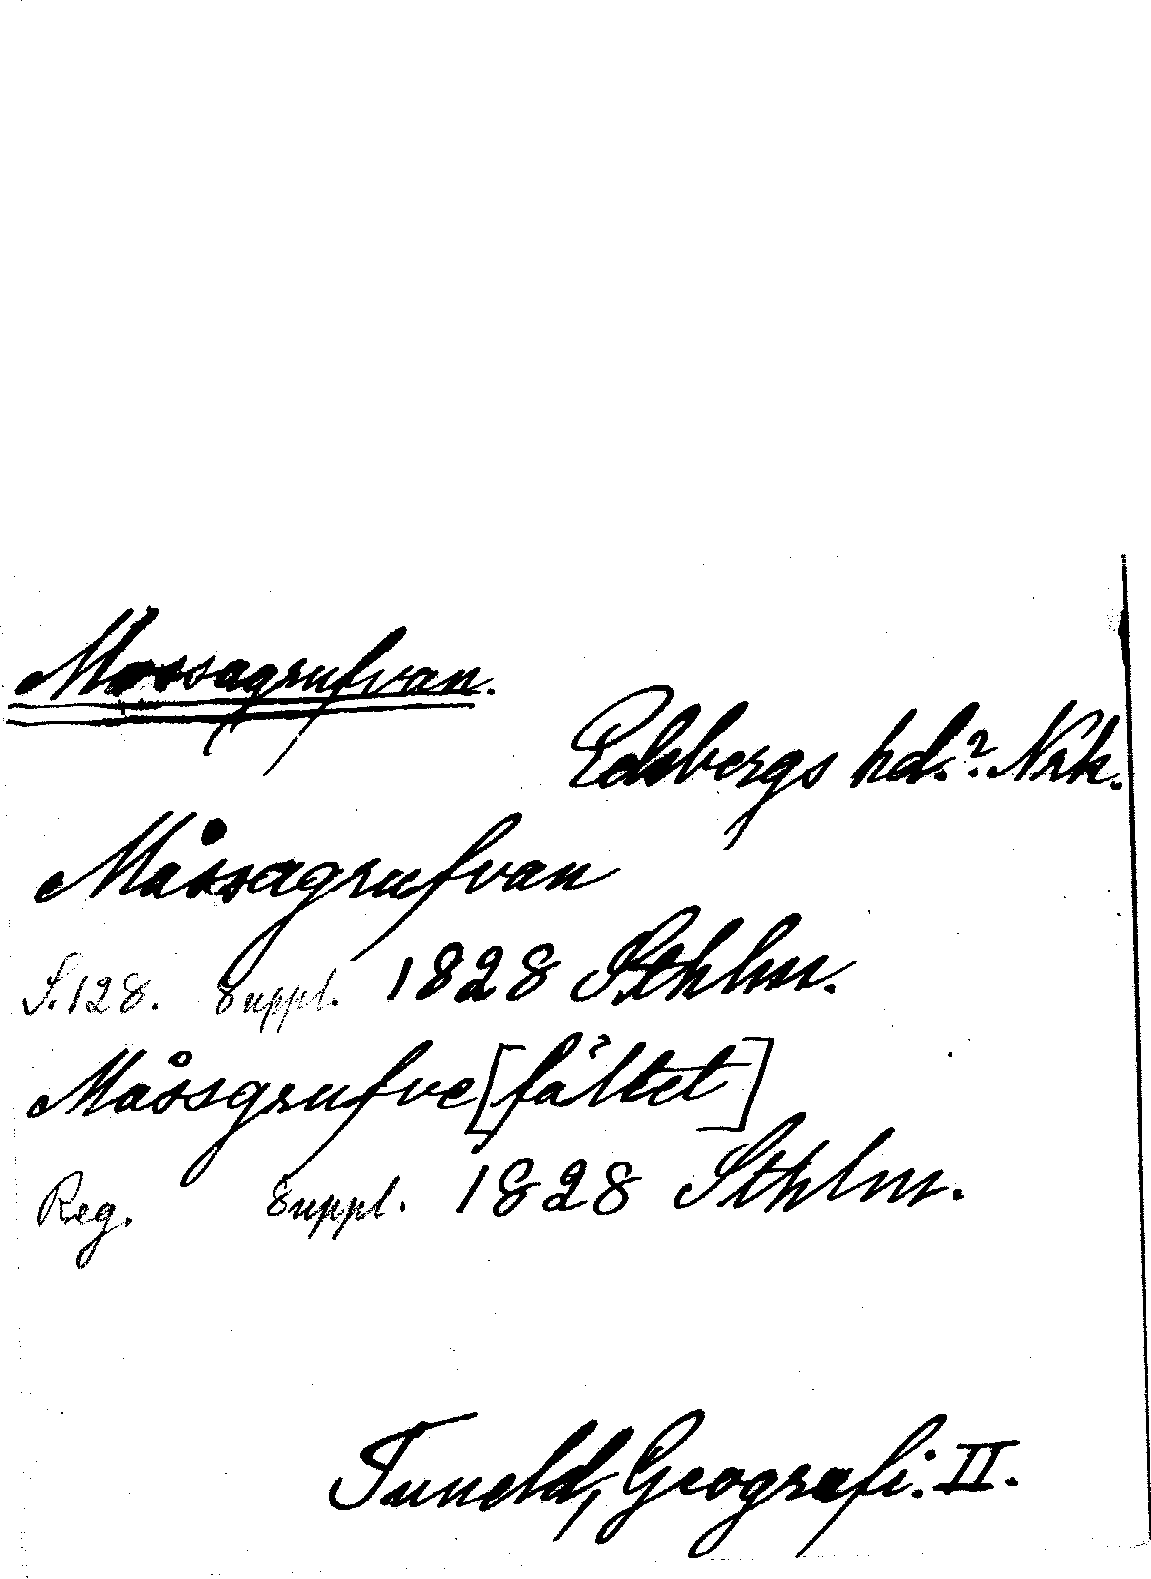 Mossagrufvan.
Edsbergs hd.? Nrk.
Måssagrufvan
S. 128. Suppl. 1828 Sthlm.
Måssgrufve[fältet]
Reg. Suppl. 1828 Sthlm.
Tuneld, Geografi. II.